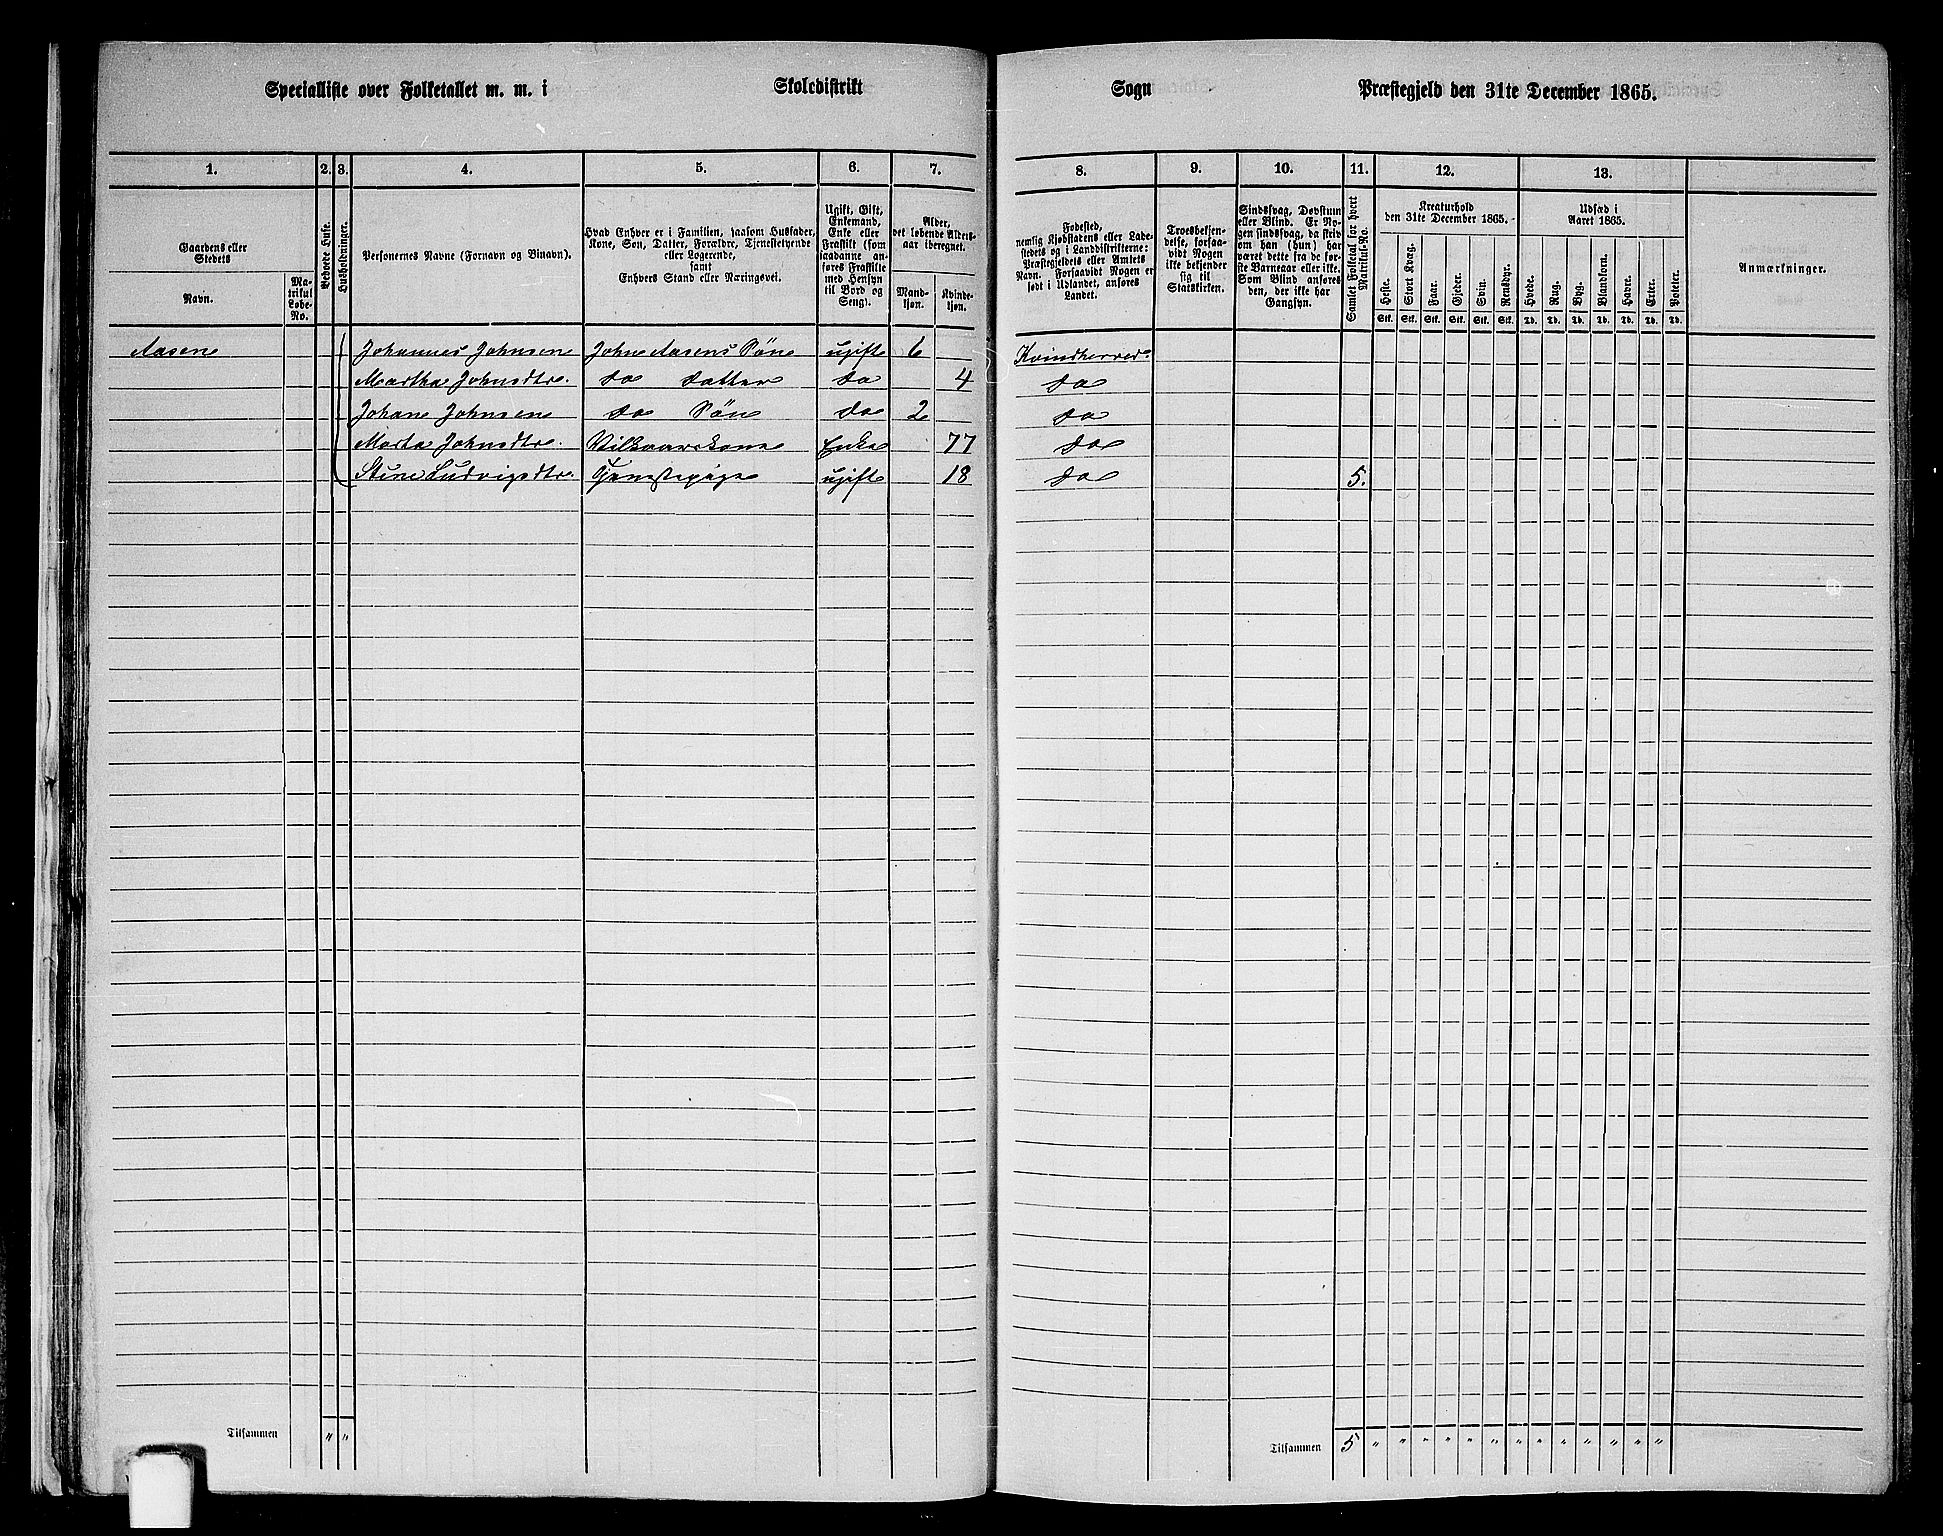 Specialliste over Folketallet m. m. i Skoledistrikt Sogn Præstegjeld den 31te December 1865.
1. 2. 3. 4. 5. 6. 7. 8. 9. 10. 11. 12. 13.
Gaardens eller Stedets
Navn.
Matrikul Løbe-No.
Beboede Huse.
Husholdninger.
Personernes Navne (Fornavn og Binavn).
Hvad Enhver er i Familien, saasom Husfader, Kone, Søn, Datter, Forældre, Tjenestetyende eller Logerende, samt Enhvers Stand eller Næringsvei.
Ugift, Gift, Enkemand, Enke eller Fraskilt (som saadanne anføres Fraskilte med Hensyn til Bord og Seng).
Alder, det løbende Alders-aar iberegnet.
Mandkjøn.
Kvindekjøn.
Fødested, nemlig Kjøbstadens eller Ladestedets og i Landdistrikterne: Præstegjeldets eller Amtets Navn. Forsaavidt Nogen er født i Udlandet, anføres Landet.
Troesbekjendelse, forsaavidt Nogen ikke bekjender sig til Statskirken.
Sindssvag, Døvstum eller Blind. Er Nogen sindssvag, da skrives om han (hun) har været dette fra de første Barneaar eller ikke. Som Blind anføres den, der ikke har Gangsyn.
Samlet Folketal for hvert Matrikul-No.
Kreaturhold den 31te December 1865.
Heste. Stort Kvæg. Faar. Gjeder. Svin. Rensdyr.
Stk. Stk. Stk. Stk. Stk. Stk.
Udsæd i Aaret 1865.
Hvede. Rug. Byg. Blandkorn. Havre. Erter. Poteter.
Td. Td. Td. Td. Td. Td. Td.
Anmærkninger.
Aasene Johannes Johnsen Johne Aasens Søn ugift 6 Kvindherred.
Martha Johnsdtr. do datter do 4 do
Johan Johnsen do Søn do 2 do
Marta Johnsdtr. Vilkaarskone Enke 77 do
Stine Ludvigsdtr. Tjenestepige ugift 18 do 5.
Tilsammen " "
Tilsammen 5 " " " " " " " " " " " " "